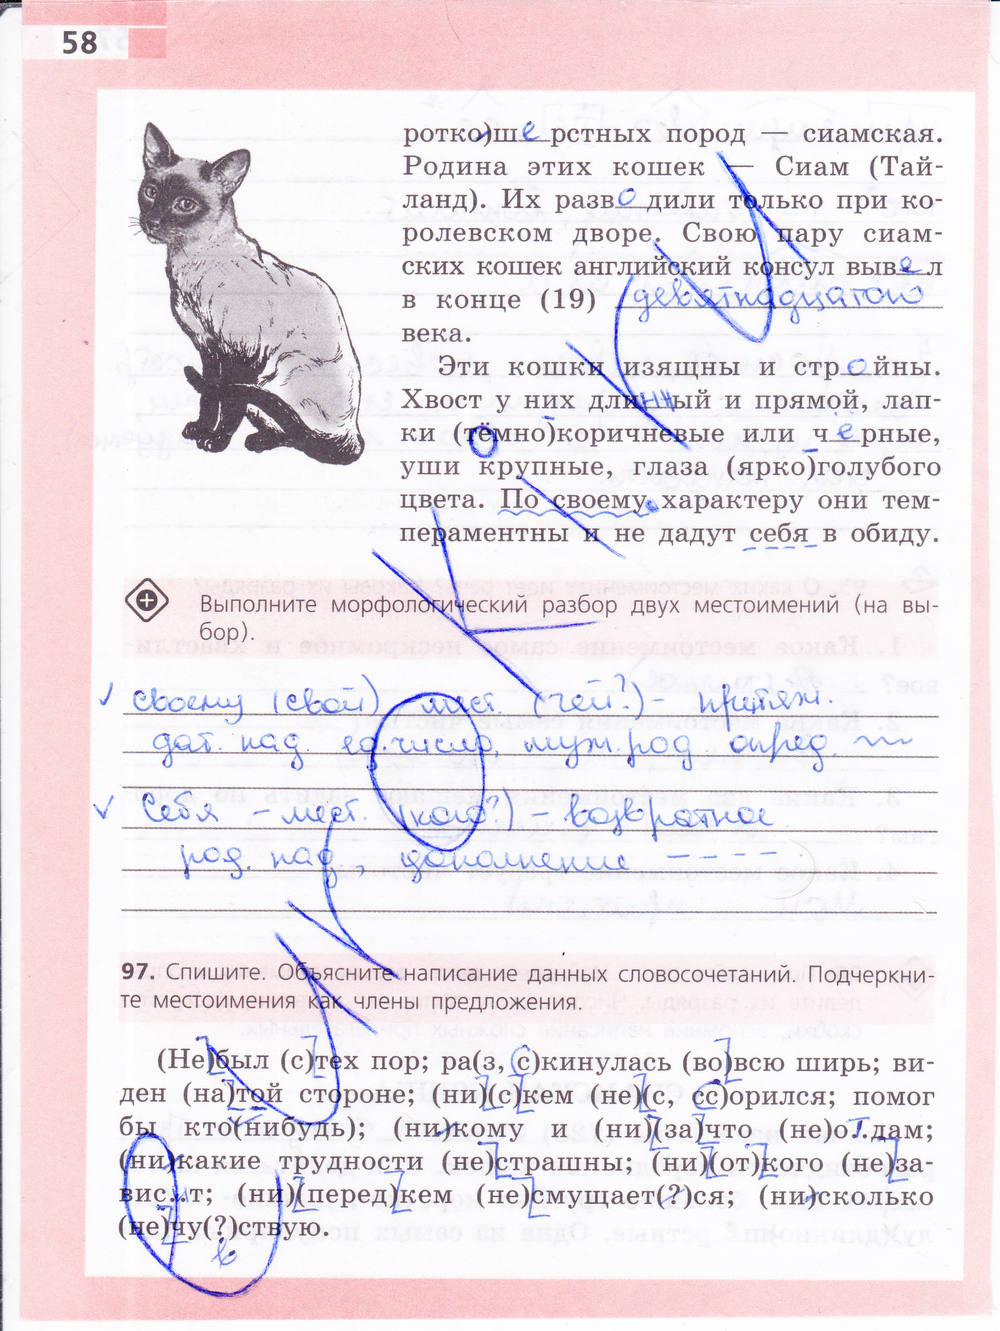 58
ротко)ше рстных пород — сиамская.
Родина этих кошек — Сиам (Тай-
ланд). Их разво дили только при ко-
ролевском дворе. Свою пару сиам-
ских кошек английский консул выве л
в конце (19) девятнадцатого
века.
Эти кошки изящны и стро йны.
Хвост у них длинный и прямой, лап-
ки (тёмно)коричневые или чё рные,
уши крупные, глаза (ярко)голубого
цвета. По своему характеру они тем-
пераментны и не дадут себя в обиду.
Выполните морфологический разбор двух местоимений (на вы-
бор).
✓ своему (свой) мест. (чей?) – притяж.
дат. пад. ед. число, муж. род. опред.
✓ Себя – мест. (кого?) – возвратное
род. пад., дополнение
97. Спишите. Объясните написание данных словосочетаний. Подчеркни-
те местоимения как члены предложения.
(Не)был (с)тех пор; ра(з, с)кинулась (во)всю ширь; ви-
ден (на)той стороне; (ни)(с)кем (не)(с, сс)орился; помог
бы кто(нибудь); (ни)кому и (ни)(за)что (не)отдам;
(ни)какие трудности (не)страшны; (ни)(от)кого (не)за-
висит; (ни)(перед)кем (не)смущает(?)ся; (ни)сколько
(не)чу(?)ствую.
в